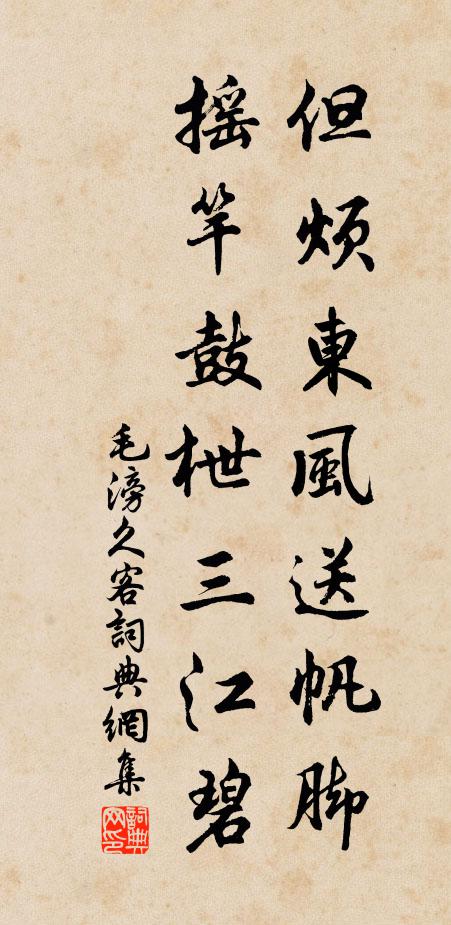 但烦東風送帆脚
摇竿鼓枻三江碧
毛滂久客詞典網集
詞典網印